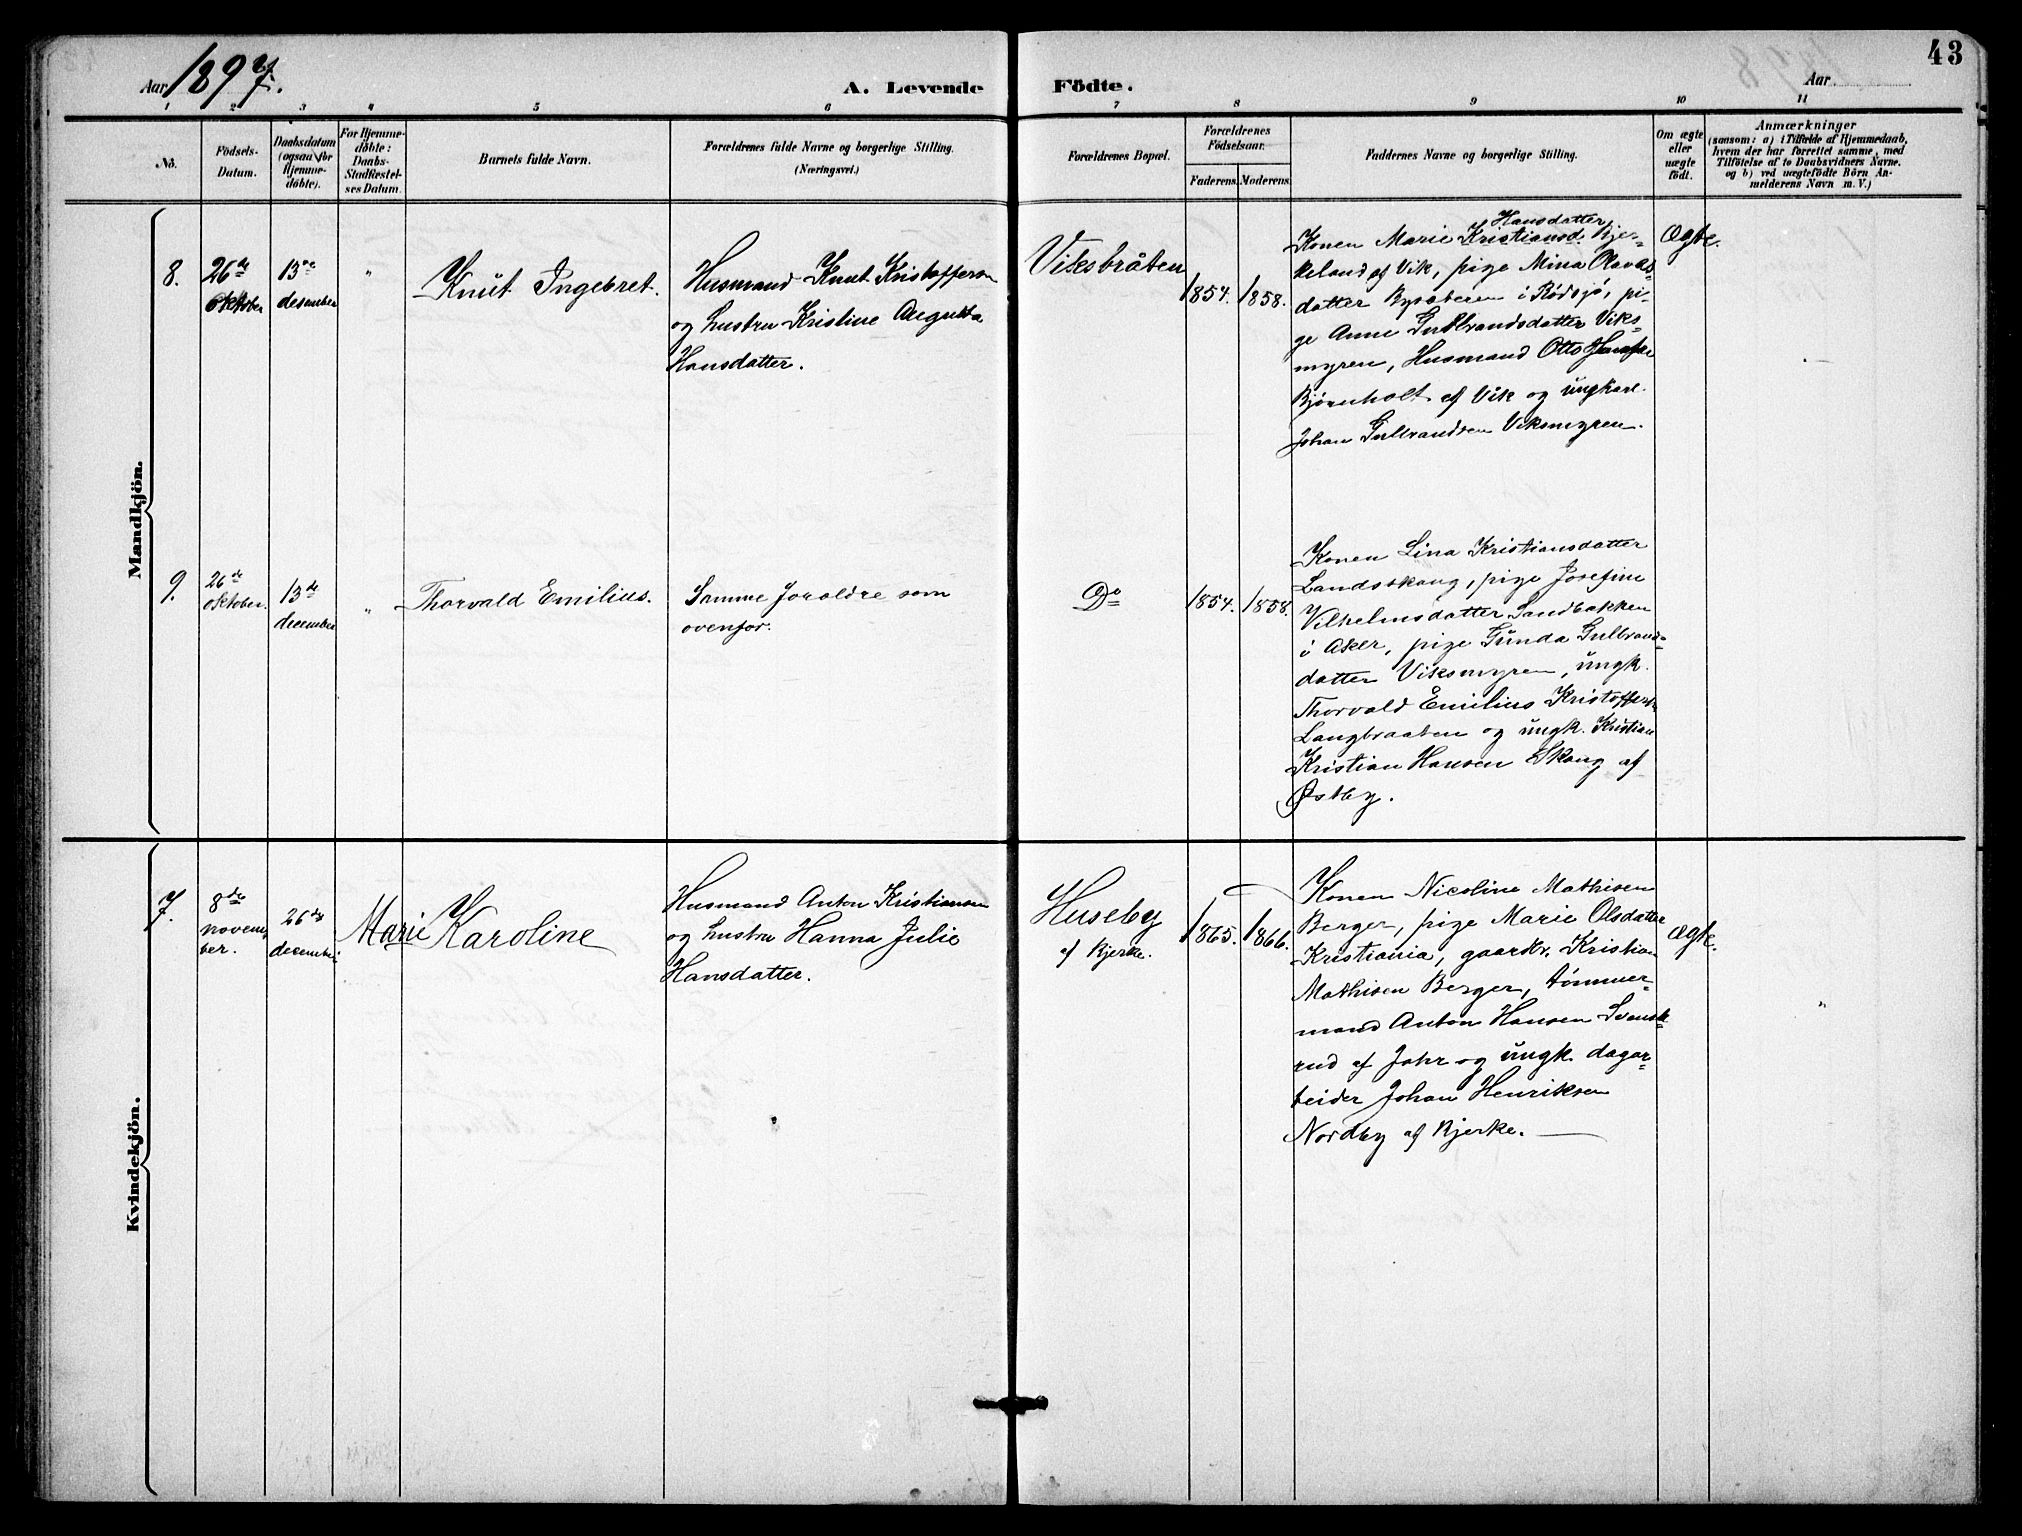 43
Aar 1897.
A. Levende Födte.
Aar
1 2 3 4 5 6 7 8 9 10 11
No.
Födsels-
Datum.
Daabsdatum
(ogsaa for
Hjemme-
döbte).
For Hjemme-
döbte:
Daabs-
Stadfæstel-
ses Datum.
Barnets fulde Navn.
Forældrenes fulde Navne og borgerlige Stilling.
(Næringsvei.)
Forældrenes Bopæl.
Forældrenes
Födselsaar.
Faderens. Moderens.
Faddernes Navne og borgerlige Stilling.
Om ægte
eller
uægte
født.
Anmærkninger
(saasom: a) i Tilfælde af Hjemmedaab,
hvem der har forrettet samme, med
Tilföielse af to Daabsvidners Navne.
og b) ved uægtefödte Börn An-
melderens Navn m. V.)
Mandkjön.
8.
26de
oktober
13de
desember
"
Knut Ingebret.
Husmand Knut Kristoffersen
og hustru Kristine Augusta
Hansdatter.
Viksbråten
1854. 1858.
Hansdatter
Konen Marie Kristiansd. Bjer-
keland af Vik, pige Mina Olavas-
datter Bysæteren i Rødsjø, pi-
ge Anne Gulbrandsdatter Viks-
myren, Husmand Otto
Bjørnholt af Vik og ungkarl.
Johan Gulbrandsen Viksmyren.
Ægte.
9.
26de
oktober.
13de
december
"
Thorvald Emilius.
Samme foreldre som
ovenfor.
Do
1854. 1858.
Konen Lina Kristiansdatter
Landsskaug, pige Josefine
Vilhelmsdatter Sandbakken
i Aker, pige Gunda Gulbrands-
datter Viksmyren, ungk.
Thorvald Emilius Kristoffersen
Langbraaten og ungk. Kristian
Kristian Hansen Skaug af
Østby.
Kvindekjön.
7.
8de
novem-
ber.
26de
december
Marie Karoline
Husmand Anton Kristiansen
og hustru Hanna Julie
Hansdatter.
Huseby
af Bjerke.
1865. 1866.
Konen Nicoline Mathisen
Berger, pige Marie Olsdatter
Kristiania, gaardbr. Kristian
Mathisen Berger, tømmer-
mand Anton Hansen Svensk-
rud af Jahr og ungk. dagar-
beider Johan Henriksen
Nordby af Bjerke.
ægte.
"